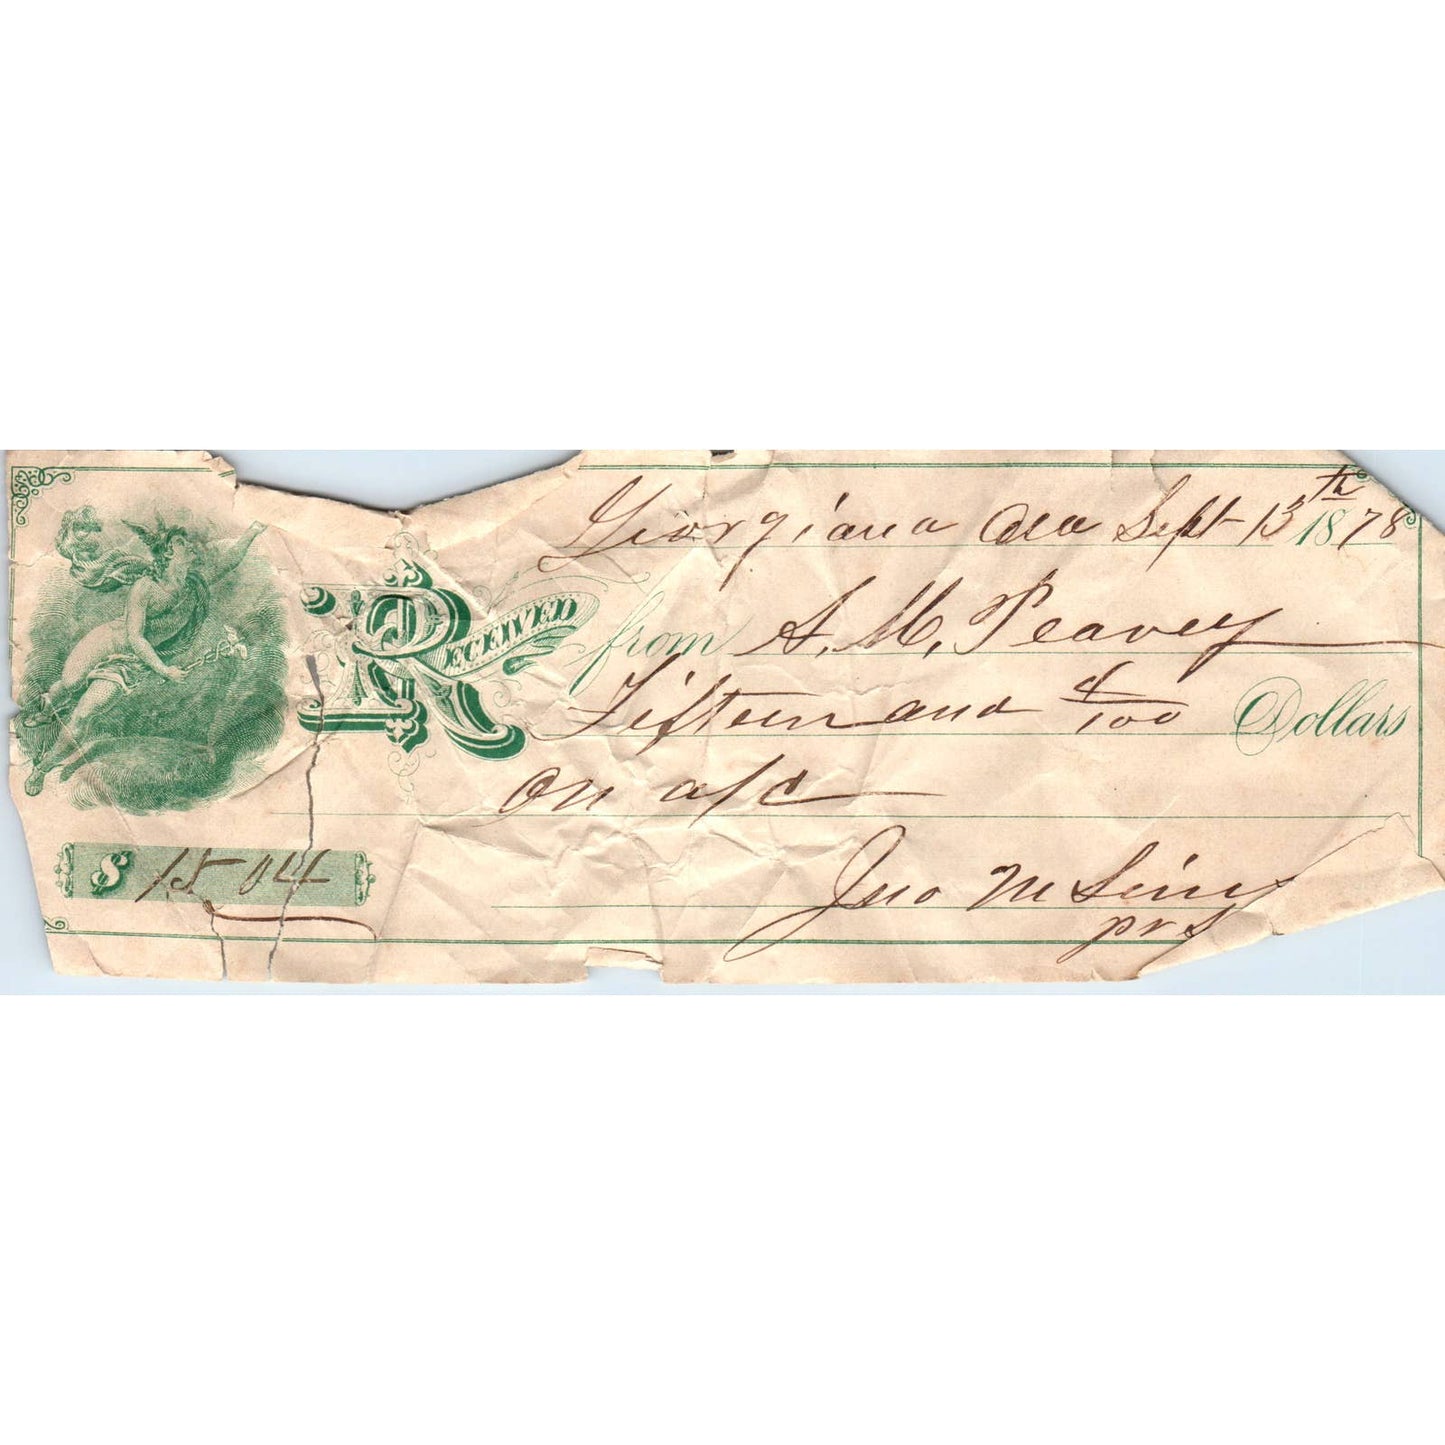 Georgiana Ala Sept 13th 1878
Received from A. M. Peavey
Fifteen and 4/100 Dollars
on a/c
$ 15 04
Jno M Sims
pr S